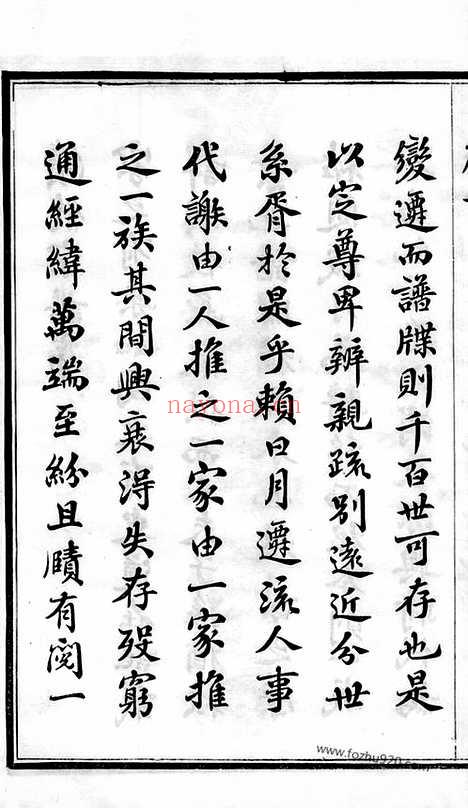 變遷而譜牒則千百世可存也是
以定尊卑辨親疏別遠近分世
系胥於是乎賴日月遷流人事
代謝由一人推之一家由一家推
之一族其間興衰得失存歿窮
通經緯萬端至紛且賾有閱一
nayona.cn
www.fozhu920.com